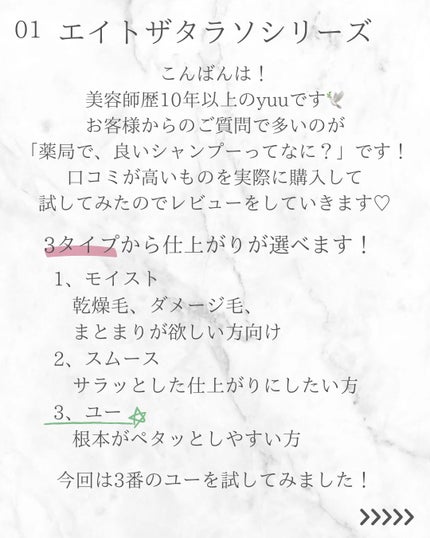 01 エイトザタラソシリーズ
こんばんは！
美容師歴10年以上のyuuです🕊️
お客様からのご質問で多いのが
「薬局で、良いシャンプーってなに？」です！
口コミが高いものを実際に購入して
試してみたのでレビューをしていきます♡
3タイプから仕上がりが選べます！
1、モイスト
乾燥毛、ダメージ毛、
まとまりが欲しい方向け
2、スムース
サラッとした仕上がりにしたい方
3、ユー
根本がペタッとしやすい方
今回は3番のユーを試してみました！